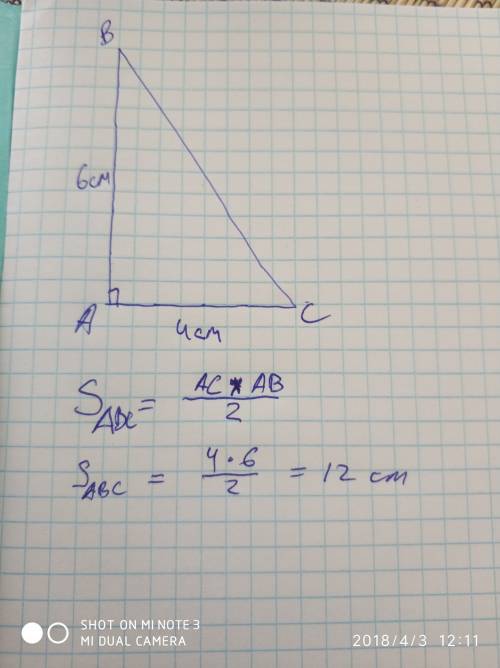 B
6см
A
C
4см
S ABC = AC * AB / 2
S ABC = 4 · 6 / 2 = 12 см
SHOT ON MI NOTE 3
MI DUAL CAMERA
2018/4/3 12:11